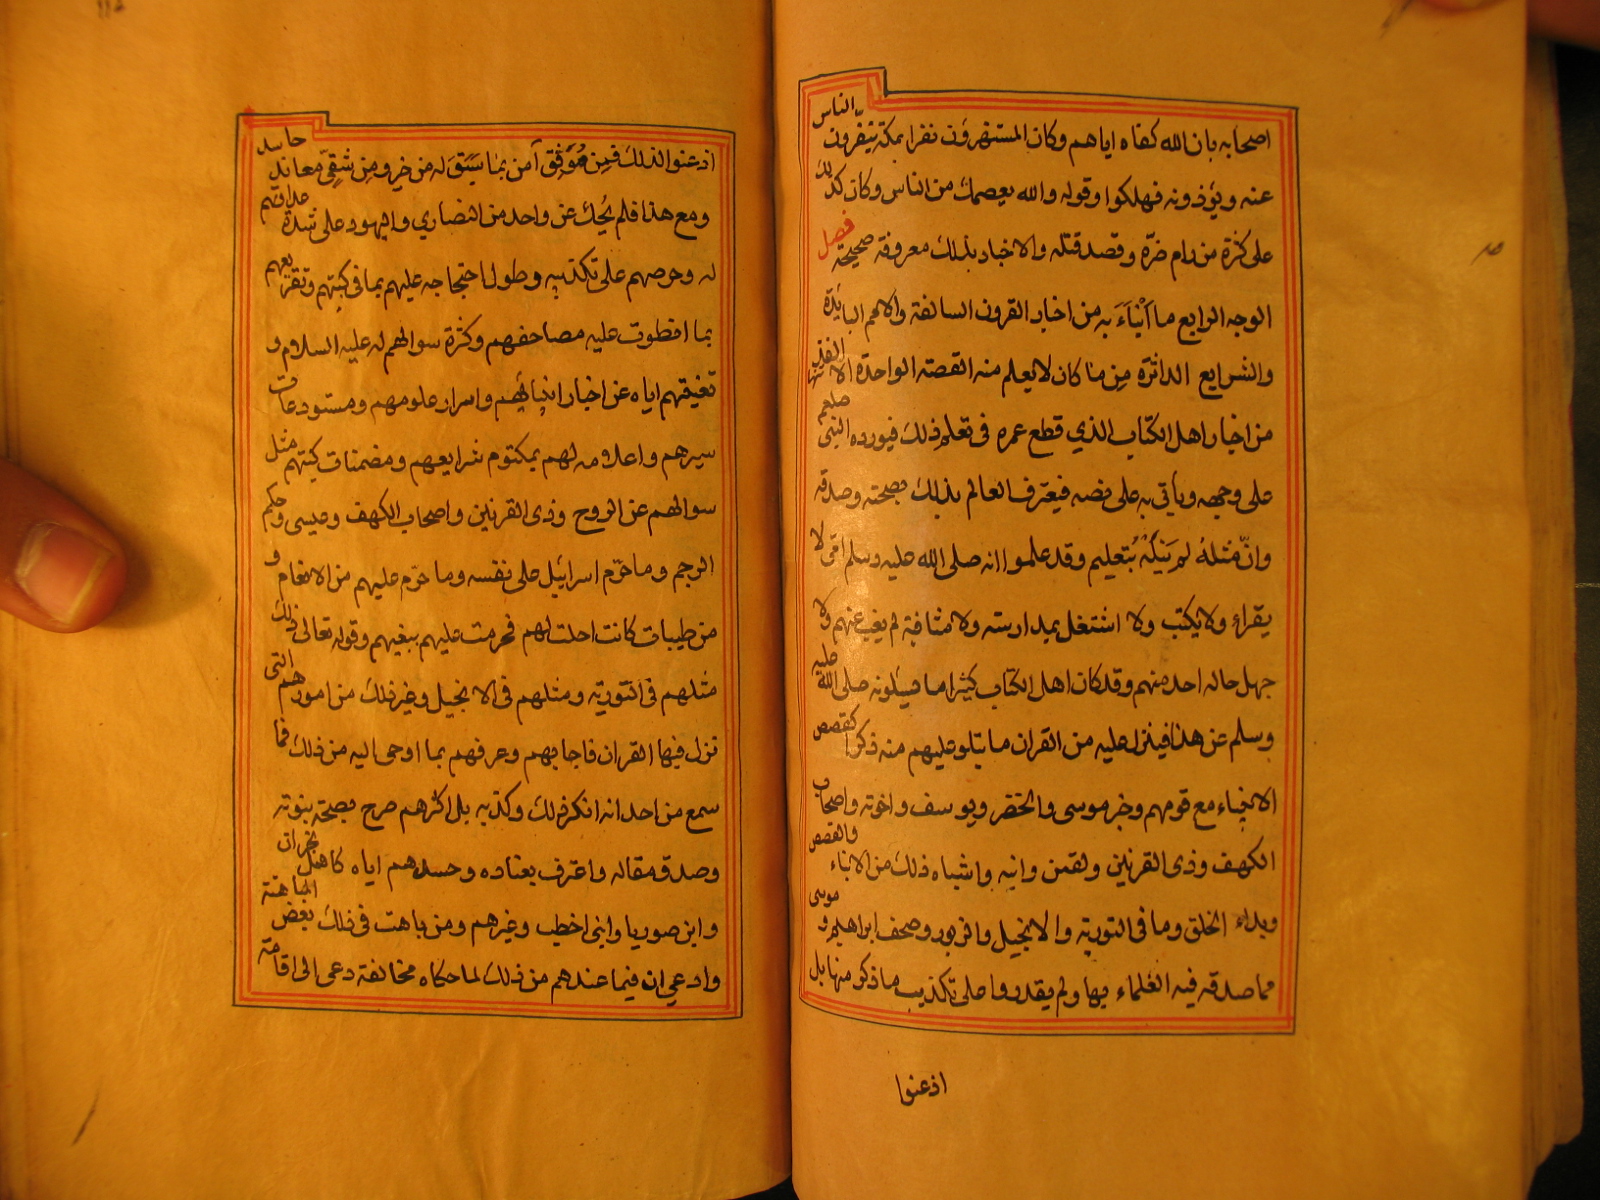 اصحابه بان الله كفاه اياهم وكان المستهزؤن نفرا بمكة ينفّرون الناس
عنه ويؤذونه فهلكوا وقوله والله يعصمك من الناس وكان كذلك
على كثرة من رام ضرّه وقصد قتله والاخبار بذلك معروفة صحيحة فصل
الوجه الرابع ما اَنْبَاَءَ به من اخبار القرون السالفة والامم البائدة
والشرايع الداثرة مِن ما كان لا يعلم منه القصة الواحدة الا الفذ
من اخبار اهل الكتاب الذي قطع عمره فى تعلم ذلك فيورده النبى صلعم
على وجهه وياتى به على نصه فيعترف العالم بذلك بصحته وصدقه
وانّ مثلهُ لم يَنَلْهُ بُتعليم وقد علموا انه صلى الله عليه وسلم امّى لا
يقراء ولا يكتب ولا اشتغل بمدارسة ولا مثافبة لم يغب عنهم ولا
جهل حاله احد منهم وقد كان اهل الكتاب كثيرا ما يسئلونه صلى الله عليه
وسلم عن هذا فينزل عليه من القران ما يتلو عليهم منه ذكرا كقصص
الانبياء مع قومهم وخبر موسى والخضر ويوسف واخوته واصحاب
الكهف وذى القرنين ولقمن وابنه واشباه ذلك من الانباء والقصص
وبداء الخلق وما فى التورية والانجيل والزبور وصحف ابراهيم و موسى
مما صدقه فيه العلماء بها ولم يقدروا على تكذيب ما ذكر منها بل
اذعنوا
اذعنوا لذلك فمِن مُوَفّق آمن بما سَبَق له من خير ومِن شقِىّ معاند حاسد
ومع هذا فلم يُحك عن واحد من النصاري واليهود على شدة عداوتهم
له وحرصهم على تكذيبه وطول احتجاجه عليهم بما فى كتبهم وتقريعهم
بما انطوت عليه مصاحفهم وكثرة سوالهم له عليه السلام و
تعنيتهم اياه عن اخبار انبيائهم واسرار علومهم ومستودعات
سيرهم واعلامه لهم بمكتوم شرايعهم ومضمنات كتبهم مثل
سوالهم عن الروح وذى القرنين واصحاب الكهف وعيسى وحكم
الرجم وما حرّم اسرائيل على نفسه وما حرّم عليهم من الانعام و
من طيبات كانت احلت لهم فحرمت عليهم ببغيهم وقوله تعالى ذلك
مثلهم فى التورية ومثلهم فى الانجيل وغير ذلك من امورهم التى
نزل فيها القران فاجابهم وعرفهم بما اوحى اليه من ذلك فما
سمع من احد انه انكر ذلك وكذبه بل اكثرهم صرح بصحة بنوته
وصدق مقاله واعترف بعناده وحسدهم اياه كاهل نجران
وابن صوريا وابنى اخطب وغيرهم ومن باهت فى ذلك بعض المباهتة
وادعي ان فيما عندهم من ذلك لما حكاه مخالفة دعى الى اقامة